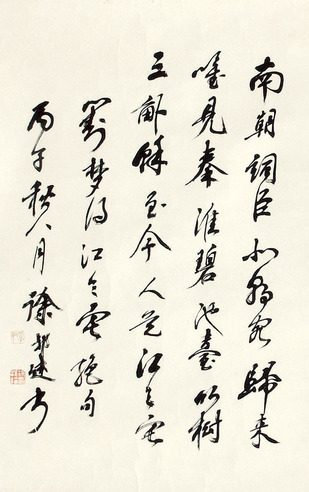 南朝詞臣北朝客歸来
唯見秦淮碧池臺竹樹
三畝餘至今人道江令宅
劉夢得江令宅絶句
丙午秋八月徐邦達书